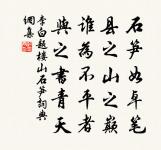 石笋如卓笔
县之山之巅
谁为不平者
与之书青天
李白题楼山石笋词典
网集